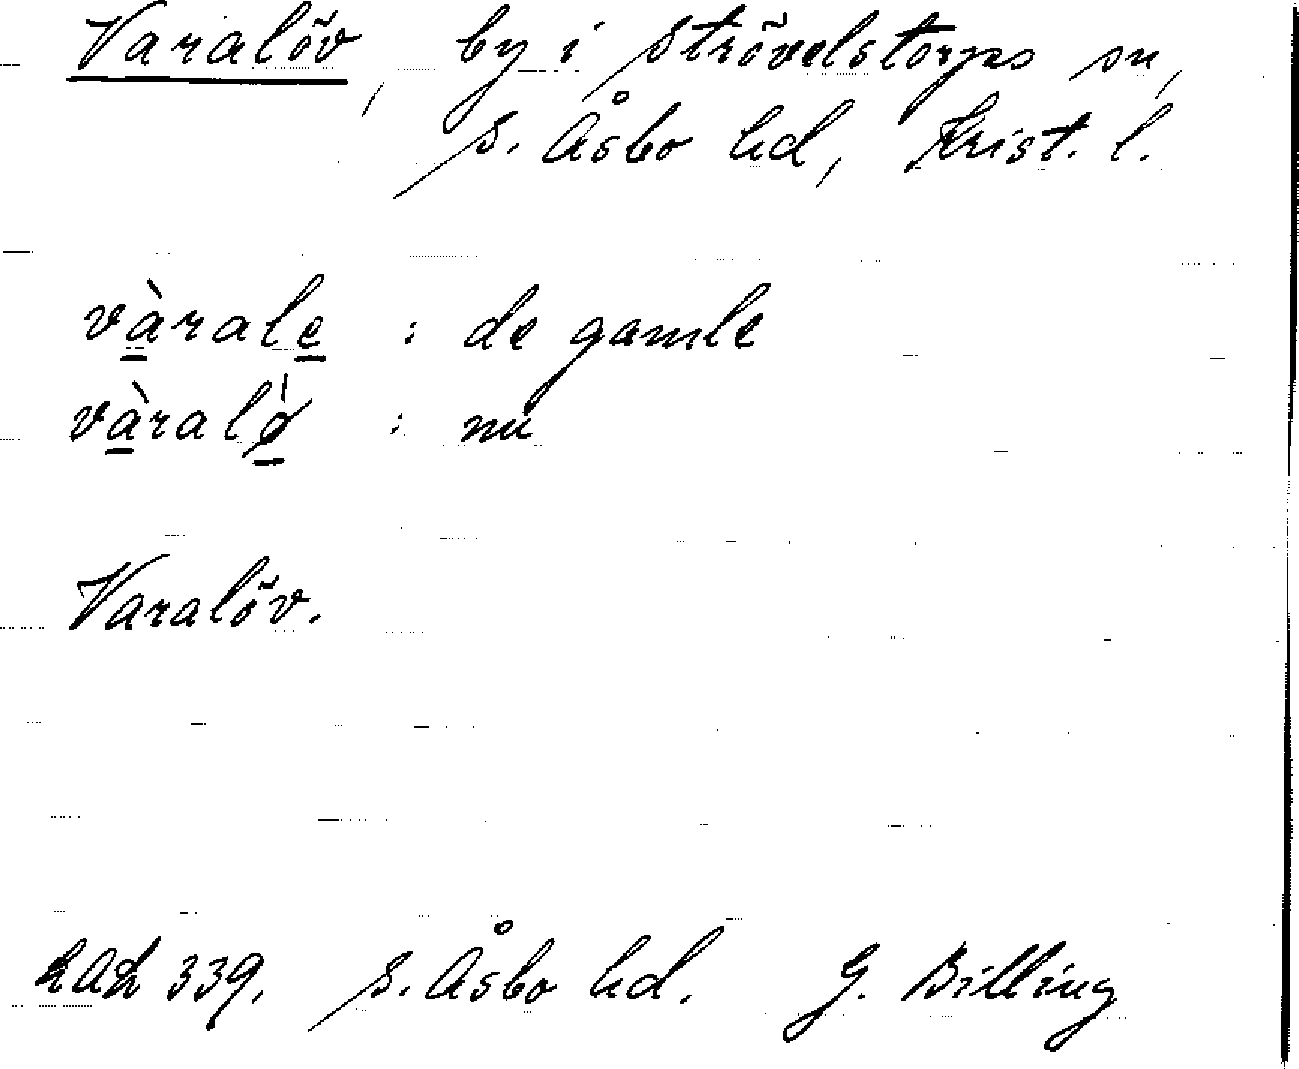 Varalöv, by i Strövelstorps sn,
S. Åsbo hd, Krist. l.
vàrale : de gamle
vàralø̀ : nu
Varalöv.
LAL 339. S. Åsbo hd. G. Billing